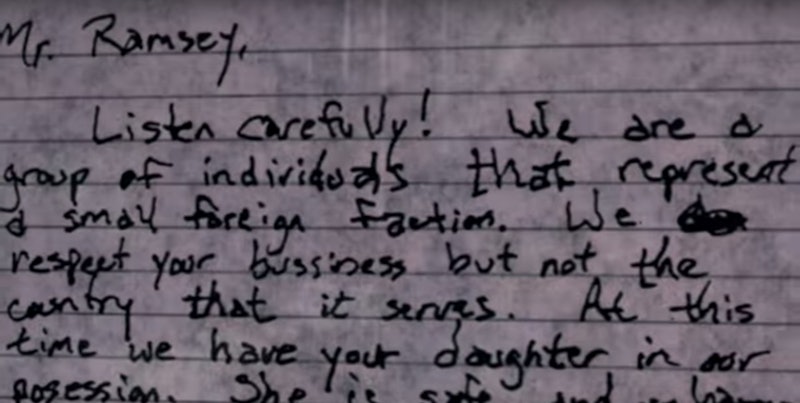 Mr. Ramsey,
Listen carefully! We are a
group of individuals that represent
a small foreign faction. We
respect your bussiness but not the
country that it serves. At this
time we have your daughter in our
posession. She is safe and unharm